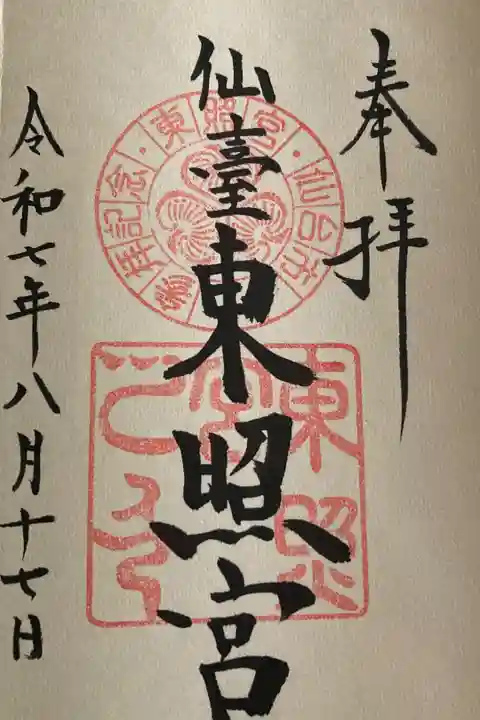 奉拝
仙臺東照宮
令和七年八月十七日
東照宮・仙台市
参拝記念
東照宮